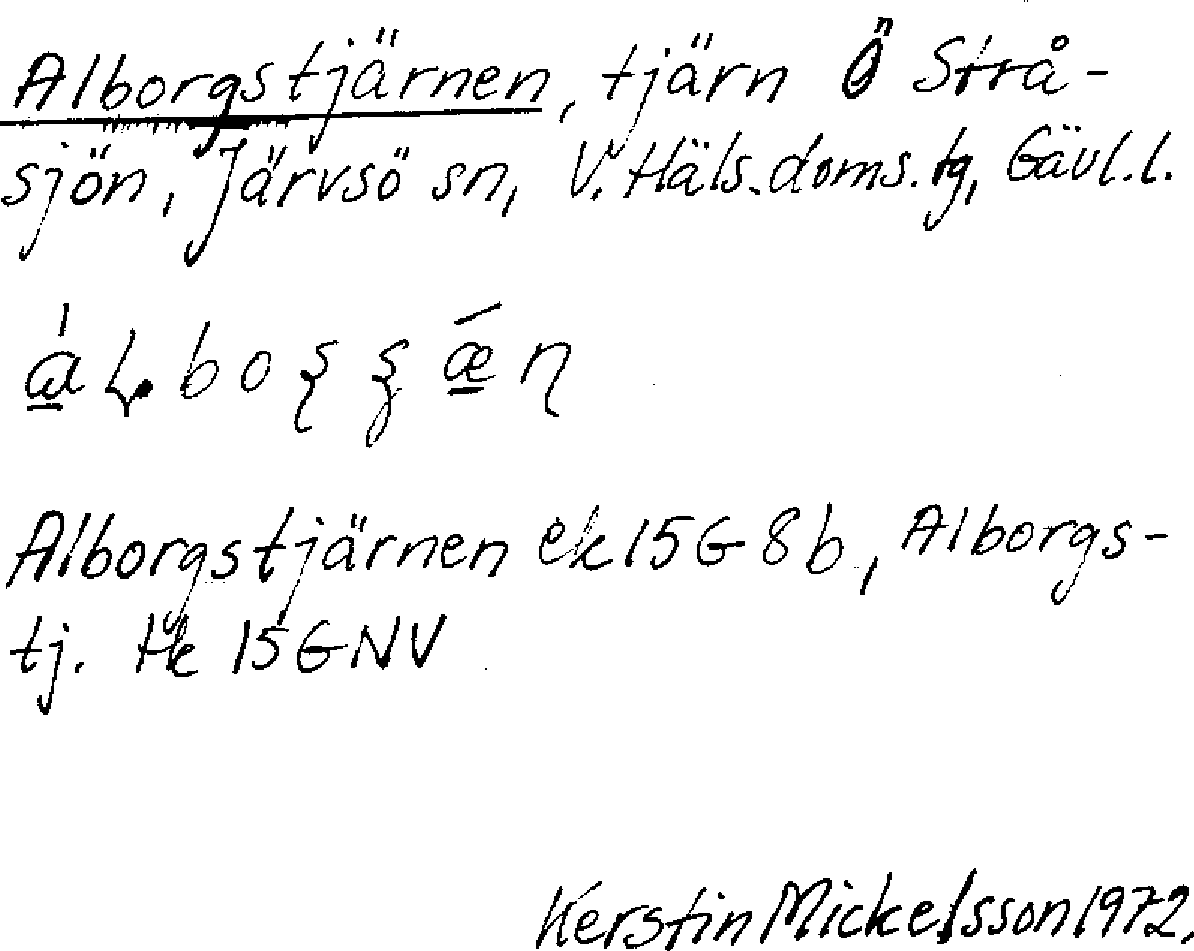 Alborgstjärnen, tjärn Ö Strå-
sjön, Järvsö sn, V. Häls. doms. tg, Gävl. l.
Alborgstjärnen ek 15 G 8 b, Alborgs-
tj. tk 15 G NV
Kerstin Mickelsson 1972.